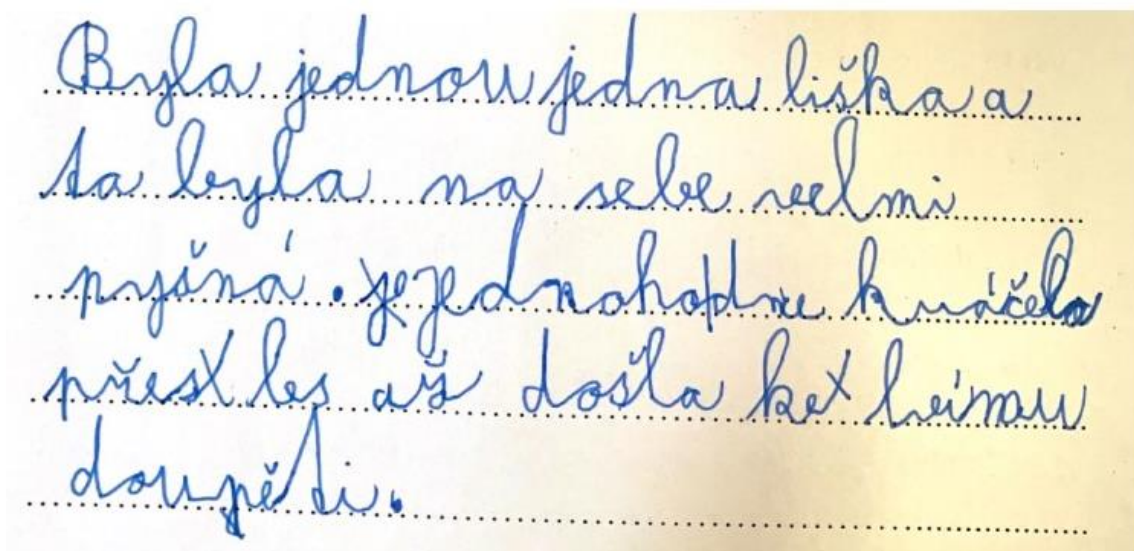 Byla jednou jedna liška a
ta byla na sebe velmi
pyšná. jejednohodne kráčela
přes les až došla ket lvímu
doupěti.